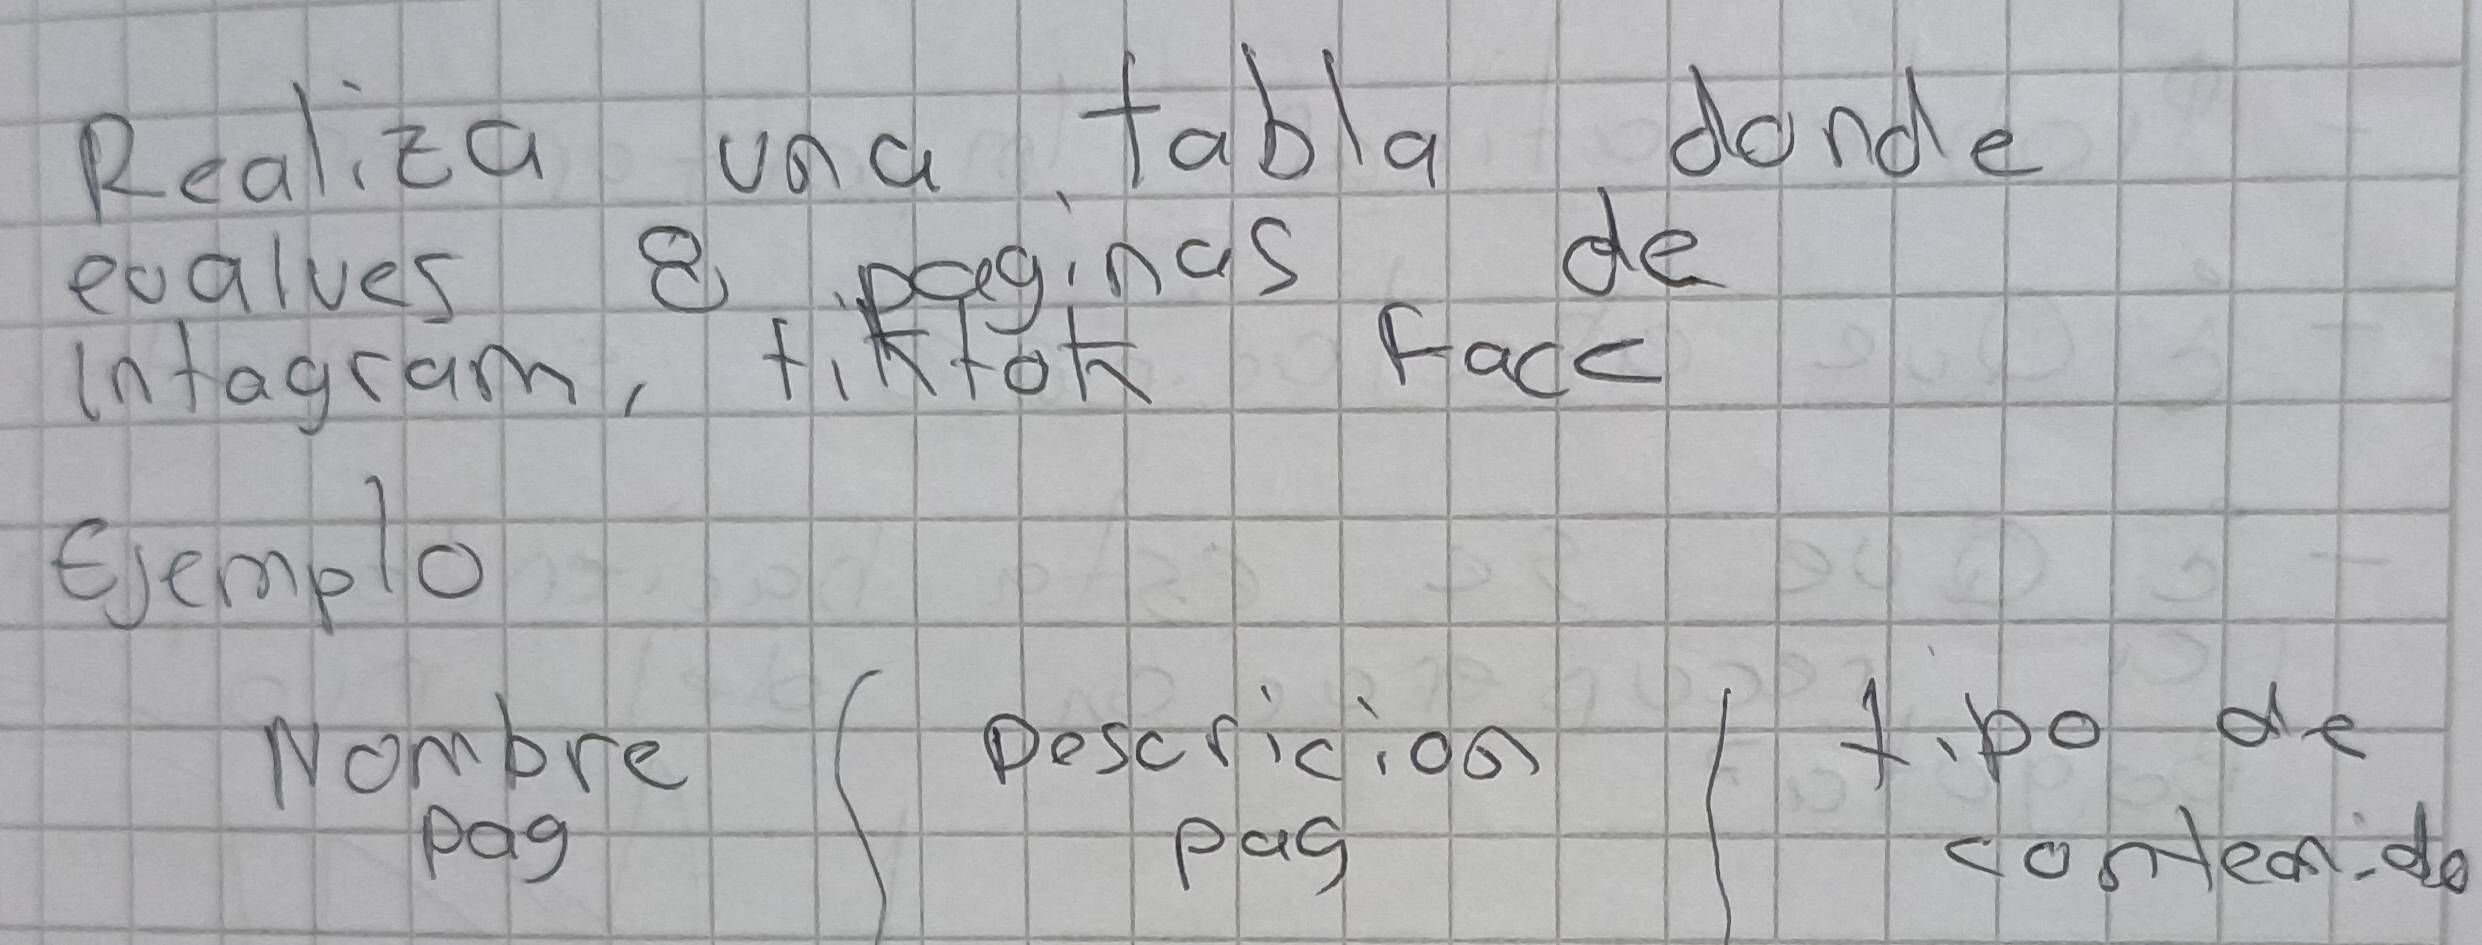 Realiza una tabla donde
evalues 8 paginas de
intagram, tiktok Face
Ejemplo
Nombre Descricion tipo de
pag pag contenido